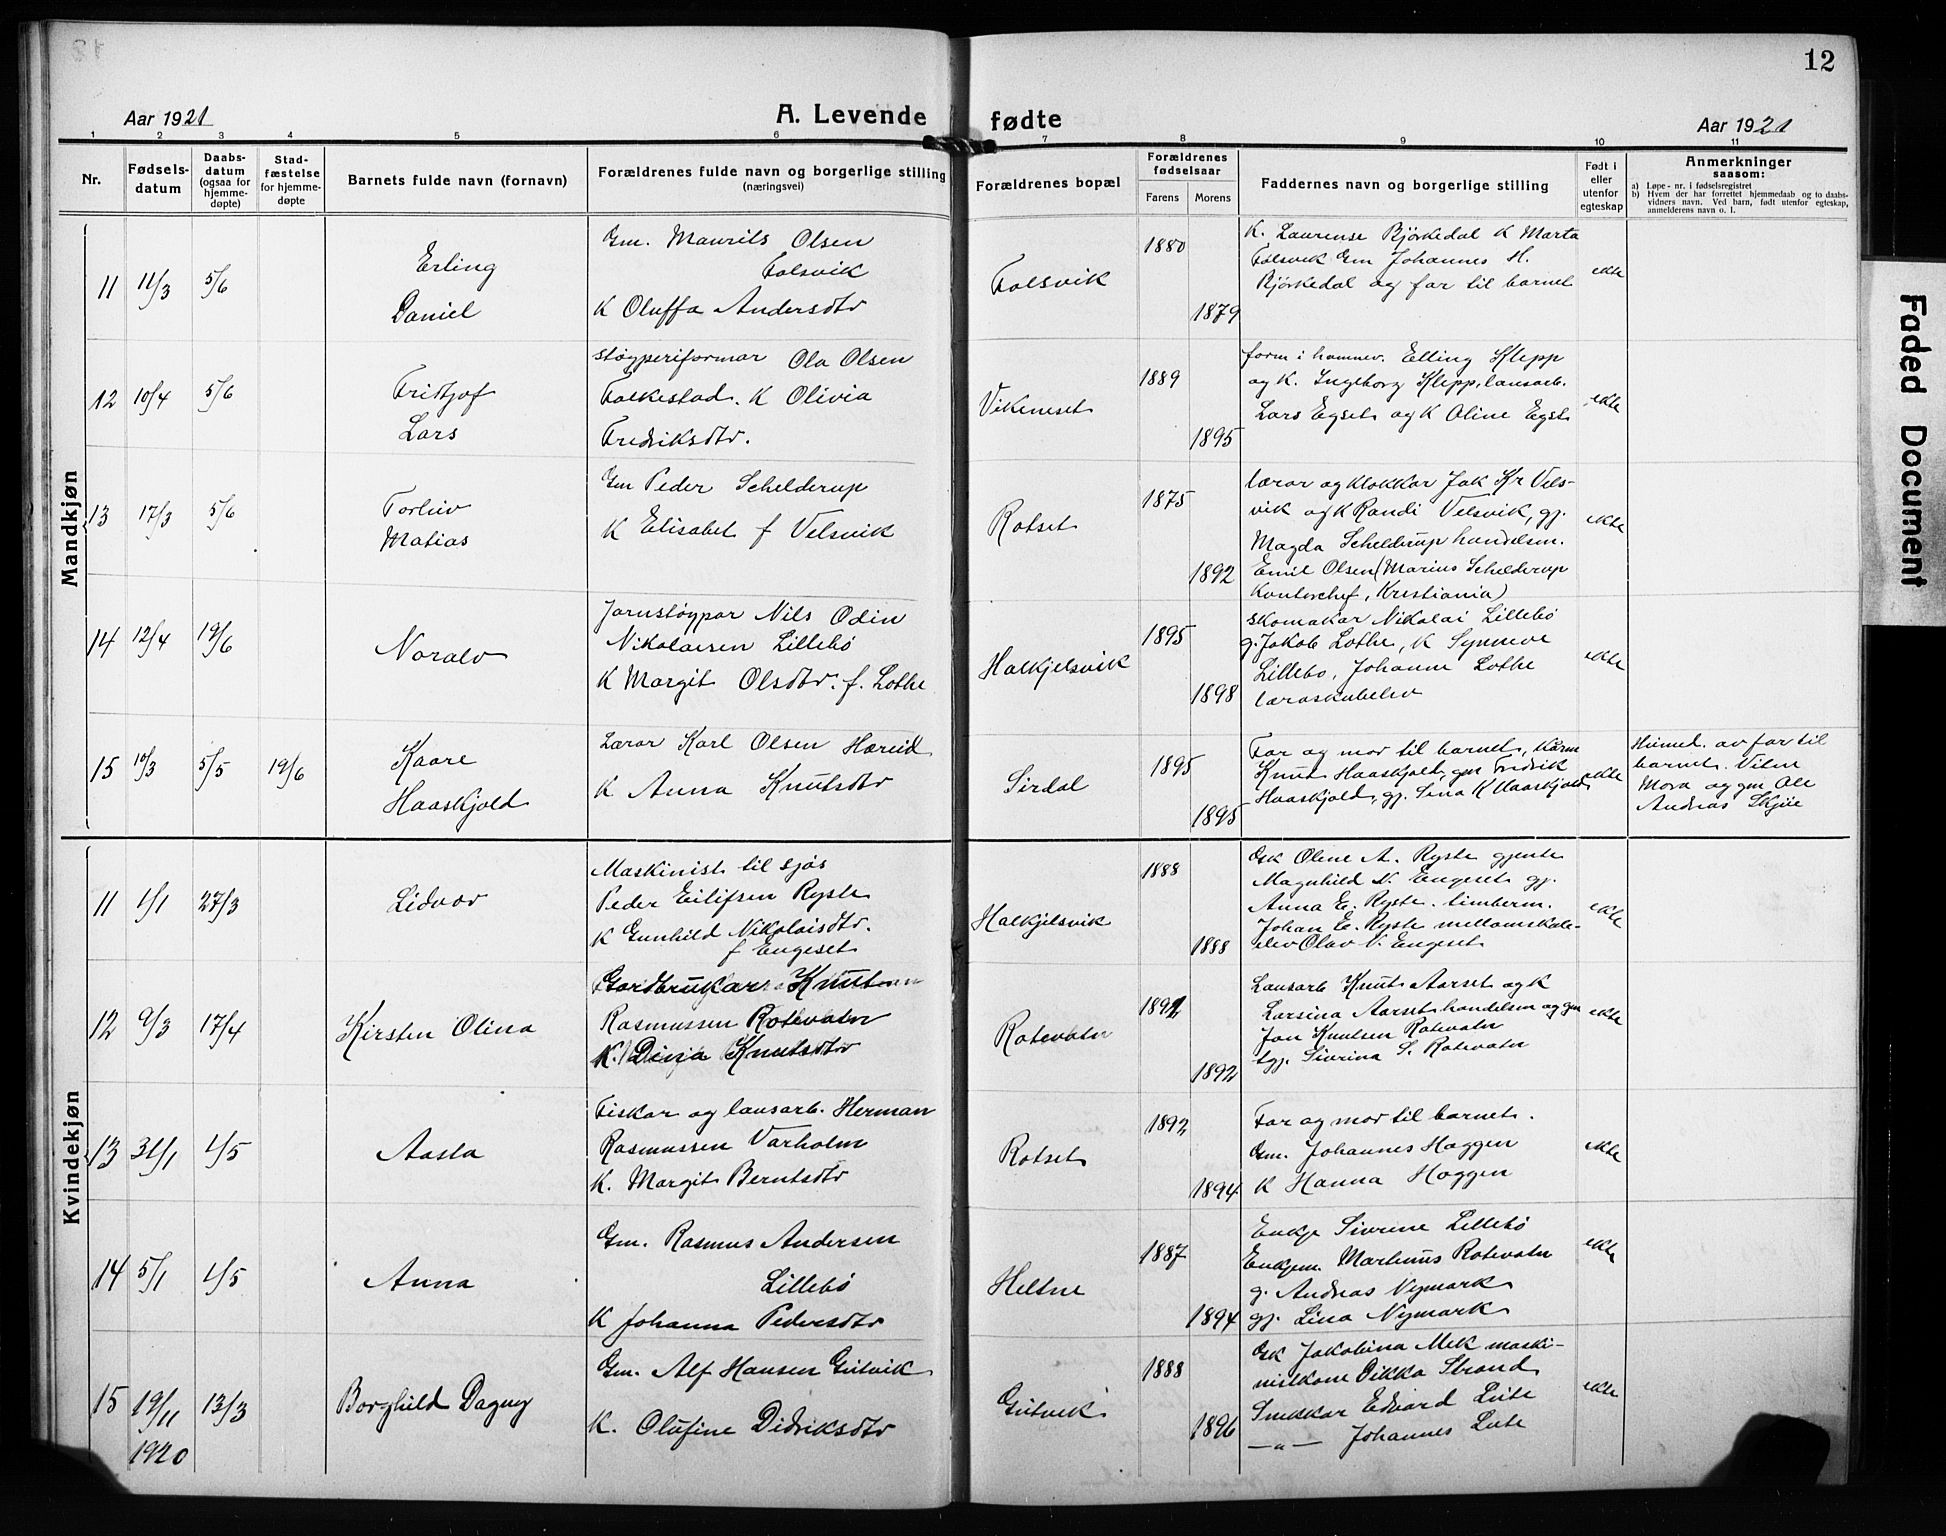 12
Aar 1921
A. Levende fødte
Aar 1921
1 2 3 4 5 6 7 8 9 10 11
Nr.
Fødsels-
datum
Daabs-
datum
(ogsaa for
hjemme-
døpte)
Stad-
fæstelse
for hjemme-
døpte
Barnets fulde navn (fornavn)
Forældrenes fulde navn og borgerlige stilling
(næringsvei)
Forældrenes bopæl
Forældrenes
fødselsaar
Farens
Morens
Faddernes navn og borgerlige stilling
Født i
eller
utenfor
egteskap
Anmerkninger
saasom:
a) Løpe-nr. i fødselsregistret
b) Hvem der har forrettet hjemmedaab og to daabs-
vidners navn. Ved barn, født utenfor egteskap,
anmelderens navn o. l.
Mandkjøn
11 11/3 5/6
Erling
Daniel
Gm. Maurits Olsen
Folsvik
K Oluffa Andersdtr
Folsvik
1880
1879
K. Laurense Bjørkedal K Marta
Folsvik Gm Johannes H.
Bjørkedal og far til barnet
ekte
12 10/4 5/6
Fridtjof
Lars
støyperiformar Ola Olsen
Folkestad. K Olivia
Fredriksdtr.
Vikeneset
1889
1895
form i hamnev. Elling Klepp
og K. Ingeborg Klepp, lausarb.
Lars Egset og K Oline Egset
ekte
13 17/3 5/6
Torleiv
Matias
Gm Peder Schelderup
K Elisabet f Velsvik
Rotset
1875
1892
lærar og klokkar Jak Kr Vels-
vik og K Randi Velsvik, gj.
Magda Schelderup handelsm.
Emil Olsen (Marius Schelderup
Kontorchef, Kristiania)
ekte
14 12/4 19/6
Noralv
Jarnstøypar Nils Odin
Nikolaisen Lillebø
K Margit Olsdtr. f. Lothe
Halkjelsvik
1895
1898
skomakar Nikolai Lillebø
g. Jakob Lothe, K Synneve
Lillebø, Johanne Lothe
læraskuleelev
ekte
15 10/3 5/5 19/6
Kaare
Haaskjold
Lærar Karl Olsen Hareid
K Anna Knutsdtr
Sirdal
1895
1895
Far og mor til barnet,
Knut Haaskjold, gm Fredrik
Haaskjold, gj. Sina K Haaskjold
ekte
Heimed. av far til
barnet. Vitn
Mora og gm Ole
Andreas Skjæe
Kvindekjøn
11 1/1 27/3
Lidvor
Maskinist til sjøs
Peder Eilifsen Ryste
K Gunhild Nikolaisdtr.
f Engeset
Halkjelsvik
1888
1888
Gk Oline A. Ryste gjente
Magnhild N. Engeset gj.
Anna E. Ryste. timberm.
Johan E. Ryste mellomskule-
elev Olav N. Engeset
ekte
12 9/3 17/4
Kirsten Olina
Gardbrukar Knut
Rasmussen Rotevatn
K. Knutsdtr
Rotevatn
1892
Lausarb Knut Aarset og K
Larsina Aarset handelsm og gm
Jon Knutsen Rotevatn
tgj. Sivrina S. Rotevatn
ekte
13 31/1 1/5
Aasta
Fiskar og lausarb. Herman
Rasmussen Varholm
K. Margit Berntsdtr
Rotset
1892
1894
Far og mor til barnet.
Gm. Johannes Haggen
K Hanna Haggen
ekte
14 5/1 1/5
Anna
Gm. Rasmus Andersen
Lillebø
K Johanna Pedersdtr
Heltne
1887
1894
Enkje Sivrine Lillebø
Enkjem. Martinus Rotevatn
g. Andreas Nymark
gj. Lina Nymark
ekte
15 19/11 13/3
1920
Borghild Dagny
Gm. Alf Hansen Gutvik
K. Olufine Didriksdtr
Gutvik
1888
1896
Gk Jakobina Mek maski-
nistkone Vikka Strand
Snikkar Edvard Lute
—"— Johannes Lute
ekte
Faded Document